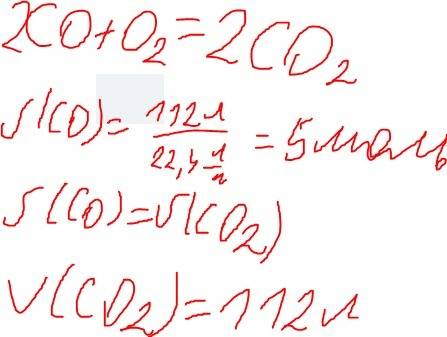 2CO+O₂=2CO₂
√(CO)=112л/22,4 л/м=5 моль
√(CO)=√(CO₂)
V(CO₂)=112л